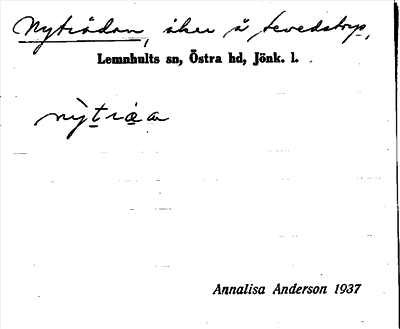 Nyträdan, åker å Tevedstorp,
Lemnhults sn, Östra hd, Jönk. l.
Annalisa Anderson 1937